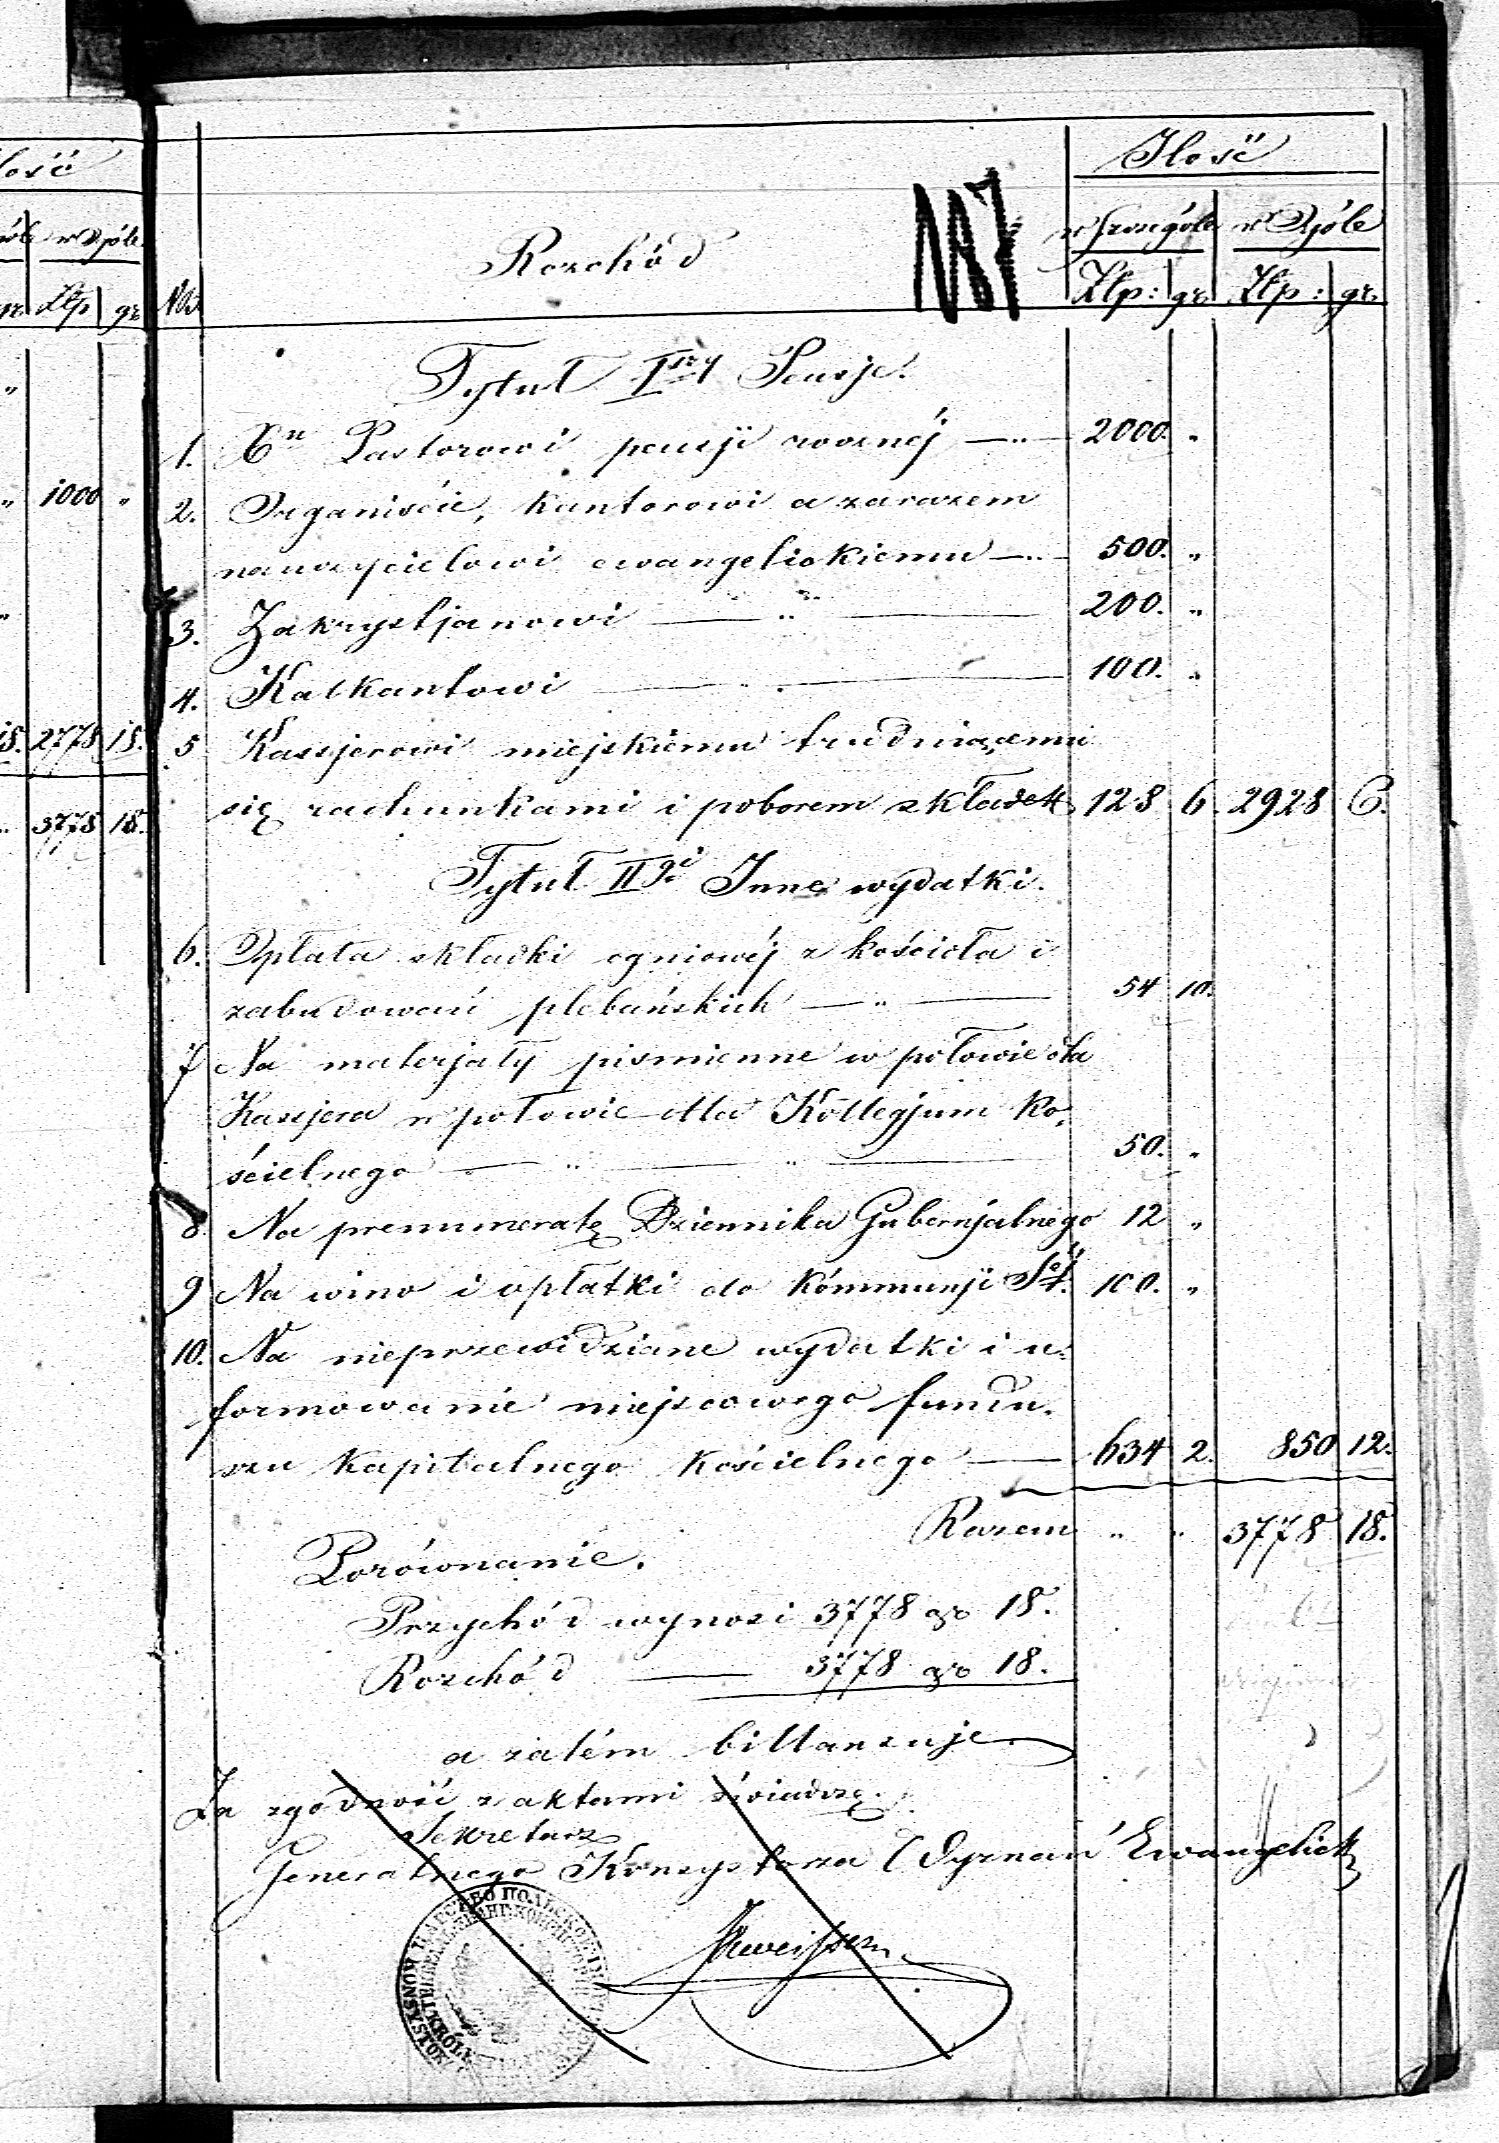 Ilość
w szczególe w ogóle
Nro Rozchód Złp: gr. Złp: gr.
Tytuł Iszy Pensje.
1. Xu Pastorowi pensji rocznéj 2000. "
2. Organiście, kantorowi a zarazem
nauczycielowi ewangelickiemu 500. "
3. Zakrystjanowi 200. "
4. Kalkantowi 100. "
5 Kassjerowi miejskiemu trudniącemu
się rachunkami i poborem składek 128 6. 2928 6.
Tytuł IIgi Inne wydatki.
6. Opłata składki ogniowéj z kościoła i
zabudowań plebańskich 54 10.
7 Na materjały piśmienne w połowie dla
Kassjera w połowie dla Kollegjum Ko-
ścielnego 50. "
8 Na prenumeratę Dziennika Gubernjalnego 12 "
9 Na wino i opłatki do kommunji Stéj. 100. "
10. Na nieprzewidziane wydatki i u-
formowanie miejscowego fundu-
szu kapitalnego kościelnego 634 2. 850 12.
Razem " " 3778 18.
Porównanie.
Przychód wynosi 3778 gr 18.
Rozchód 3778 gr 18.
a zatém billansuje
Za zgodność z aktami świadczę.
Sekretarz
Jeneralnego Konsystorza Wyznań Ewangelick
ilość
w ogóle
gr. Złp gr
" 1000 "
18. 2778 18.
" 3778 18.